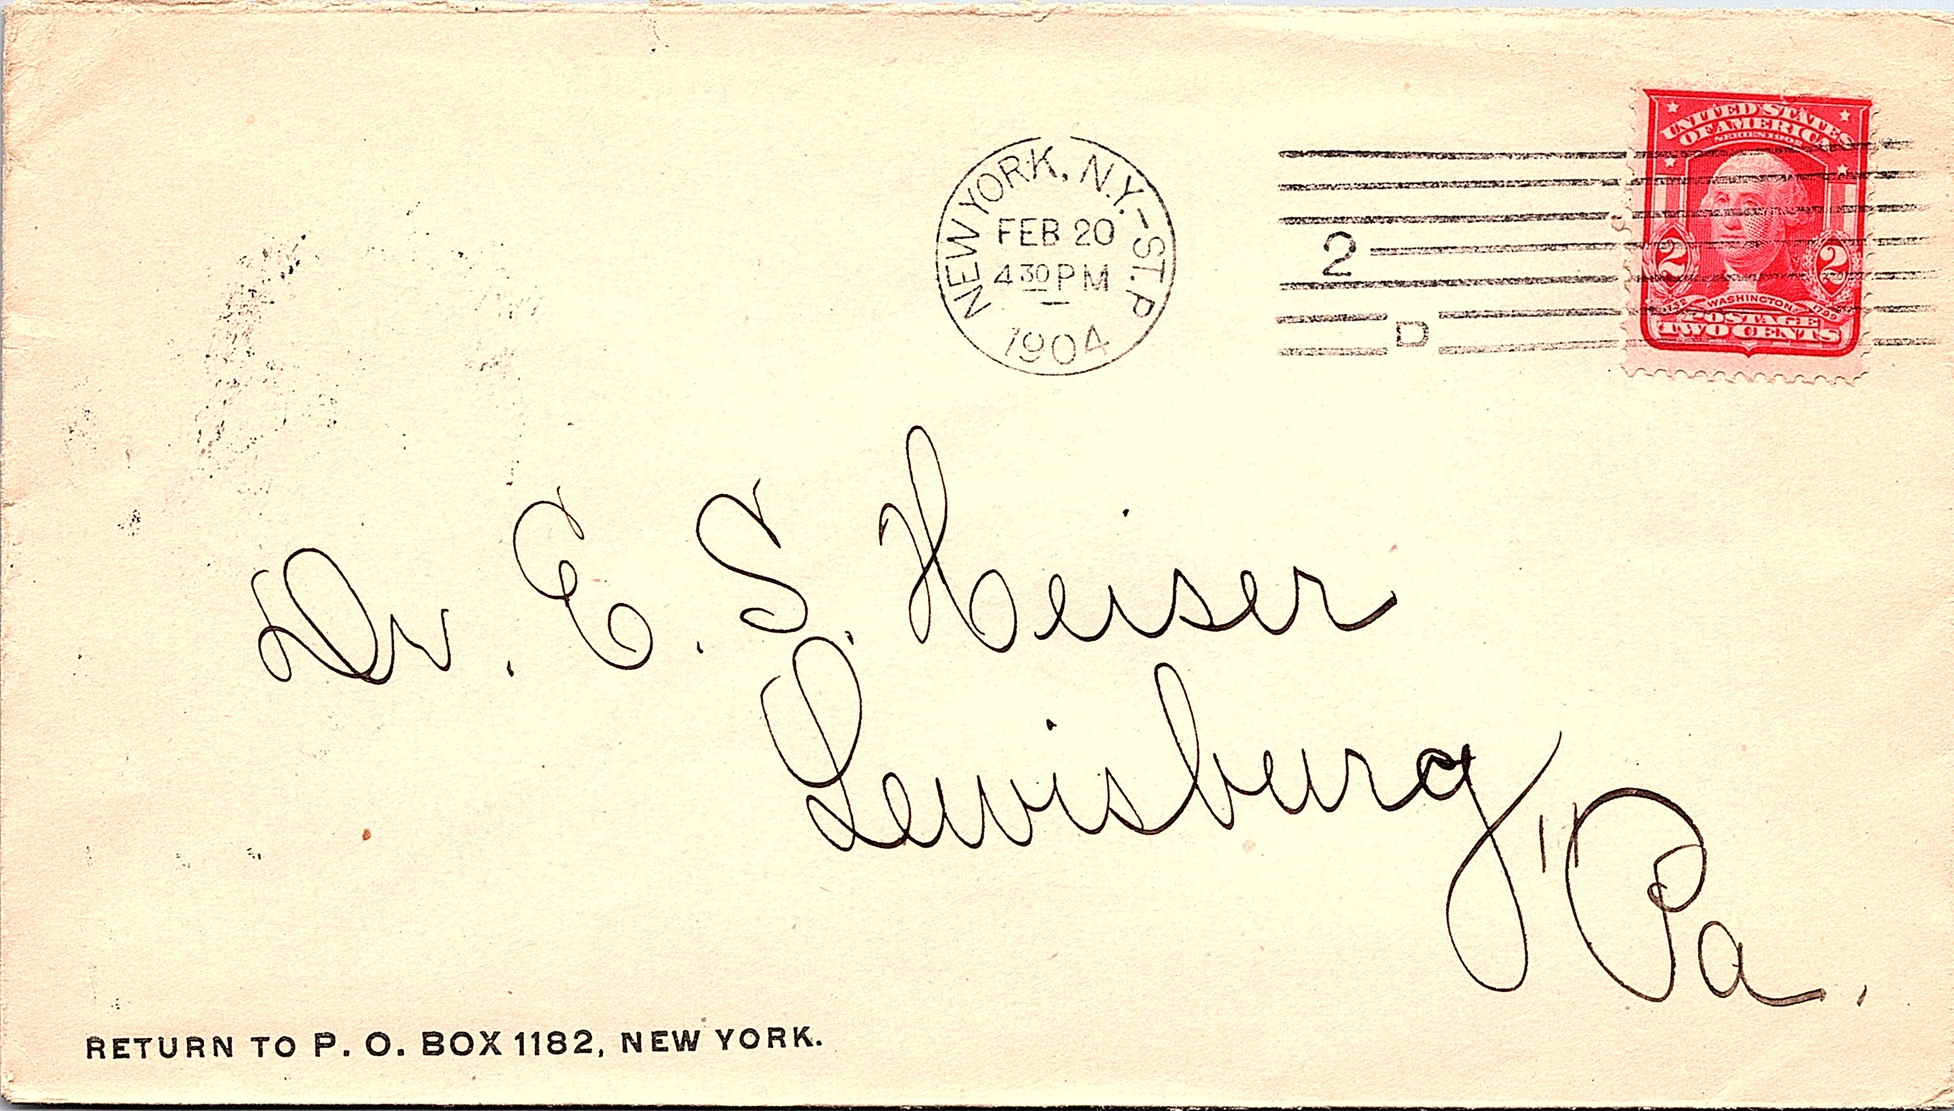 NEW YORK, N.Y.-ST. P
FEB 20
4 30 PM
1904
2
D
UNITED STATES
OF AMERICA
2 2
1732 WASHINGTON 1799
POSTAGE
TWO CENTS
Dr. E. S. Heiser
Lewisburg,
Pa.
RETURN TO P. O. BOX 1182, NEW YORK.